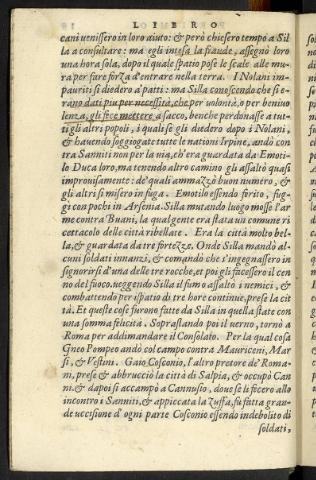 LIBRO
cani venissero in loro aiuto: & però chiesero tempo a Sil
la a consultare: ma egli intesa la fraude, assegnò loro
una hora sola, dopo il quale spatio pose le scale alle mu
ra per fare forza d'entrare nella terra. I Nolani im=
pauriti si diedero a' patti: ma Silla conoscendo che si e=
rano dati piu per necessità, che per uolontà, o per beniuo
lenza, gli fece mettere a sacco, benche perdonasse a tut=
ti gli altri popoli, i quali se gli diedero dopo i Nolani,
& hauendo soggiogate tutte le nationi Irpine, andò con
tra Sanniti non per la uia, ch'era guardata da Emoti=
lo Duca loro, ma tenendo altro camino gli assaltò quasi
improuisamente: de' quali ammazzò buon numero, &
gli altri si misero in fuga. Emotilo essendo ferito, fug=
gi con pochi in Arsenia. Silla mutando luogo mosse l'ar
me contra Buani, la qual gente era stata un comune ri
cettacolo delle città ribellate. Era la città molto bel=
la, & guardata da tre fortezze. Onde Silla mandò al=
cuni soldati innanzi, & comandò che s'ingegnassero in
signorirsi d'una delle tre rocche, et poi gli facessero il cen
no del fuoco. ueggendo Silla il fumo assaltò i nemici, &
combattendo per ispatio di tre hore continue, prese la cit
tà. Et queste cose furono fatte da Silla in quella state con
una somma felicità. Soprastando poi il uerno, tornò a
Roma per addimandare il Consolato. Per la qual cosa
Gneo Pompeo andò col campo contra Mauriceni, Mar
si, & Vestini. Gaio Cosconio, l'altro pretore de' Roma=
ni, prese & abbrucciò la città di Salpia, & occupò Can
ni. & dapoi si accampò a Cannusio, doue se li fecero allo
incontro i Sanniti, & appiccata la zuffa, fù fatta gran=
de uccisione d'ogni parte Cosconio essendo indebolito di
soldati,